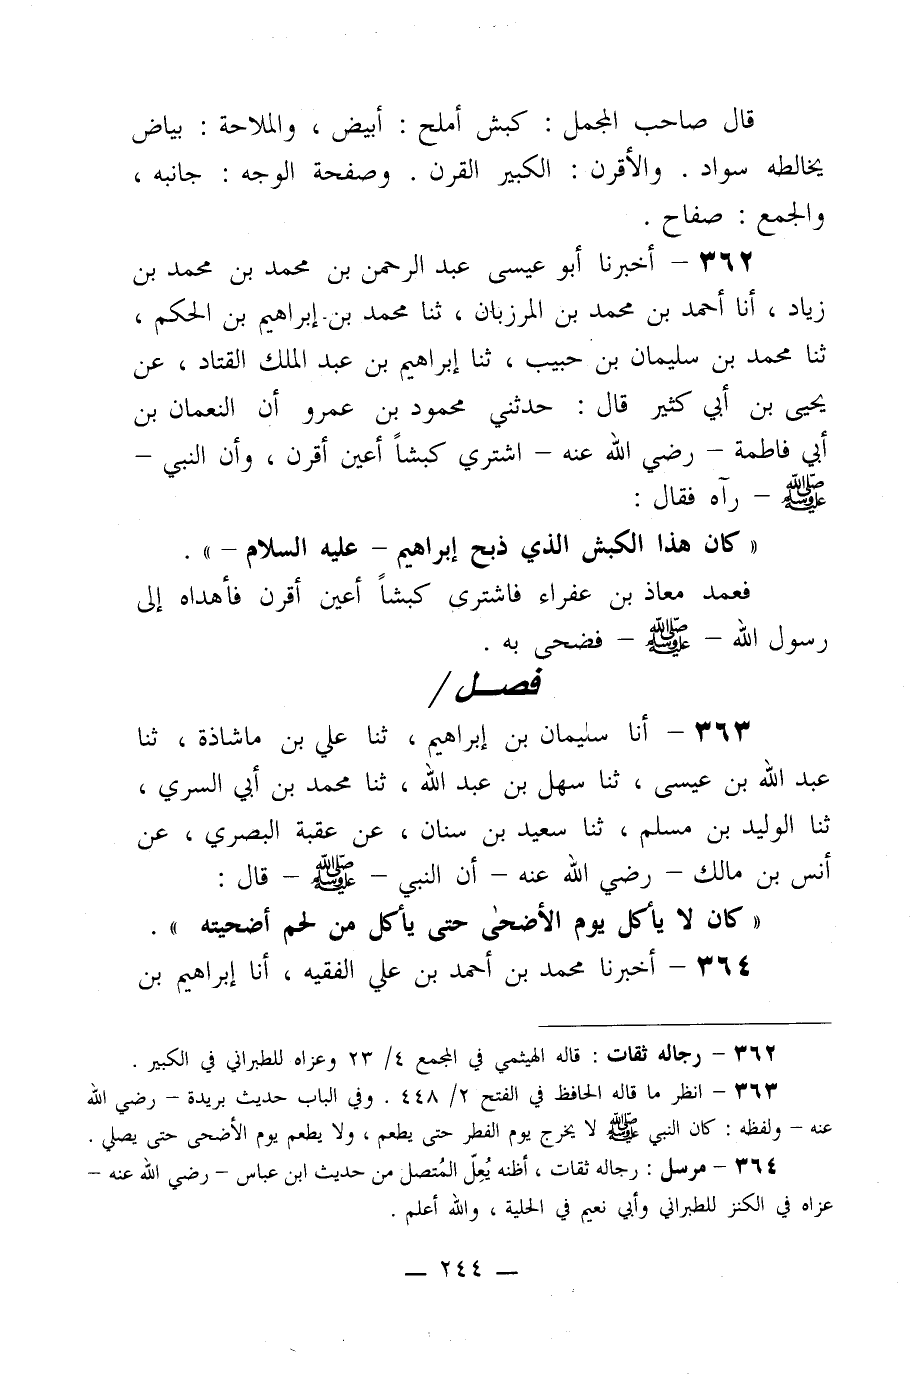 قال صاحب المجمل : كبش أملح : أبيض ، والملاحة : بياض
يخالطه سواد . والأقرن : الكبير القرن . وصفحة الوجه : جانبه ،
والجمع : صفاح .
٣٦٢ – أخبرنا أبو عيسى عبد الرحمن بن محمد بن محمد بن
زياد ، أنا أحمد بن محمد بن المرزبان ، ثنا محمد بن إبراهيم بن الحكم ،
ثنا محمد بن سليمان بن حبيب ، ثنا إبراهيم بن عبد الملك القتاد ، عن
يحيى بن أبي كثير قال : حدثني محمود بن عمرو أن النعمان بن
أبي فاطمة – رضي الله عنه – اشتري كبشاً أعين أقرن ، وأن النبي –
ﷺ – رآه فقال :
« كان هذا الكبش الذي ذبح إبراهيم – عليه السلام – » .
فعمد معاذ بن عفراء فاشترى كبشاً أعين أقرن فأهداه إلى
رسول الله – ﷺ – فضحى به .
فصــل /
٣٦٣ – أنا سليمان بن إبراهيم ، ثنا علي بن ماشاذة ، ثنا
عبد الله بن عيسى ، ثنا سهل بن عبد الله ، ثنا محمد بن أبي السري ،
ثنا الوليد بن مسلم ، ثنا سعيد بن سنان ، عن عقبة البصري ، عن
أنس بن مالك – رضي الله عنه – أن النبي – ﷺ – قال :
« كان لا يأكل يوم الأضحىٰ حتى يأكل من لحم أضحيته » .
٣٦٤ – أخبرنا محمد بن أحمد بن علي الفقيه ، أنا إبراهيم بن
٣٦٢ – رجاله ثقات : قاله الهيثمي في المجمع ٤/ ٢٣ وعزاه للطبراني في الكبير .
٣٦٣ – انظر ما قاله الحافظ في الفتح ٢/ ٤٤٨ . وفي الباب حديث بريدة – رضي الله
عنه – ولفظه : كان النبي ﷺ لا يخرج يوم الفطر حتى يطعم ، ولا يطعم يوم الأضحى حتى يصلي .
٣٦٤ – مرسل : رجاله ثقات ، أظنه يُعِلّ المُتصل من حديث ابن عباس – رضي الله عنه –
عزاه في الكنز للطبراني وأبي نعيم في الحلية ، والله أعلم .
— ٢٤٤ —